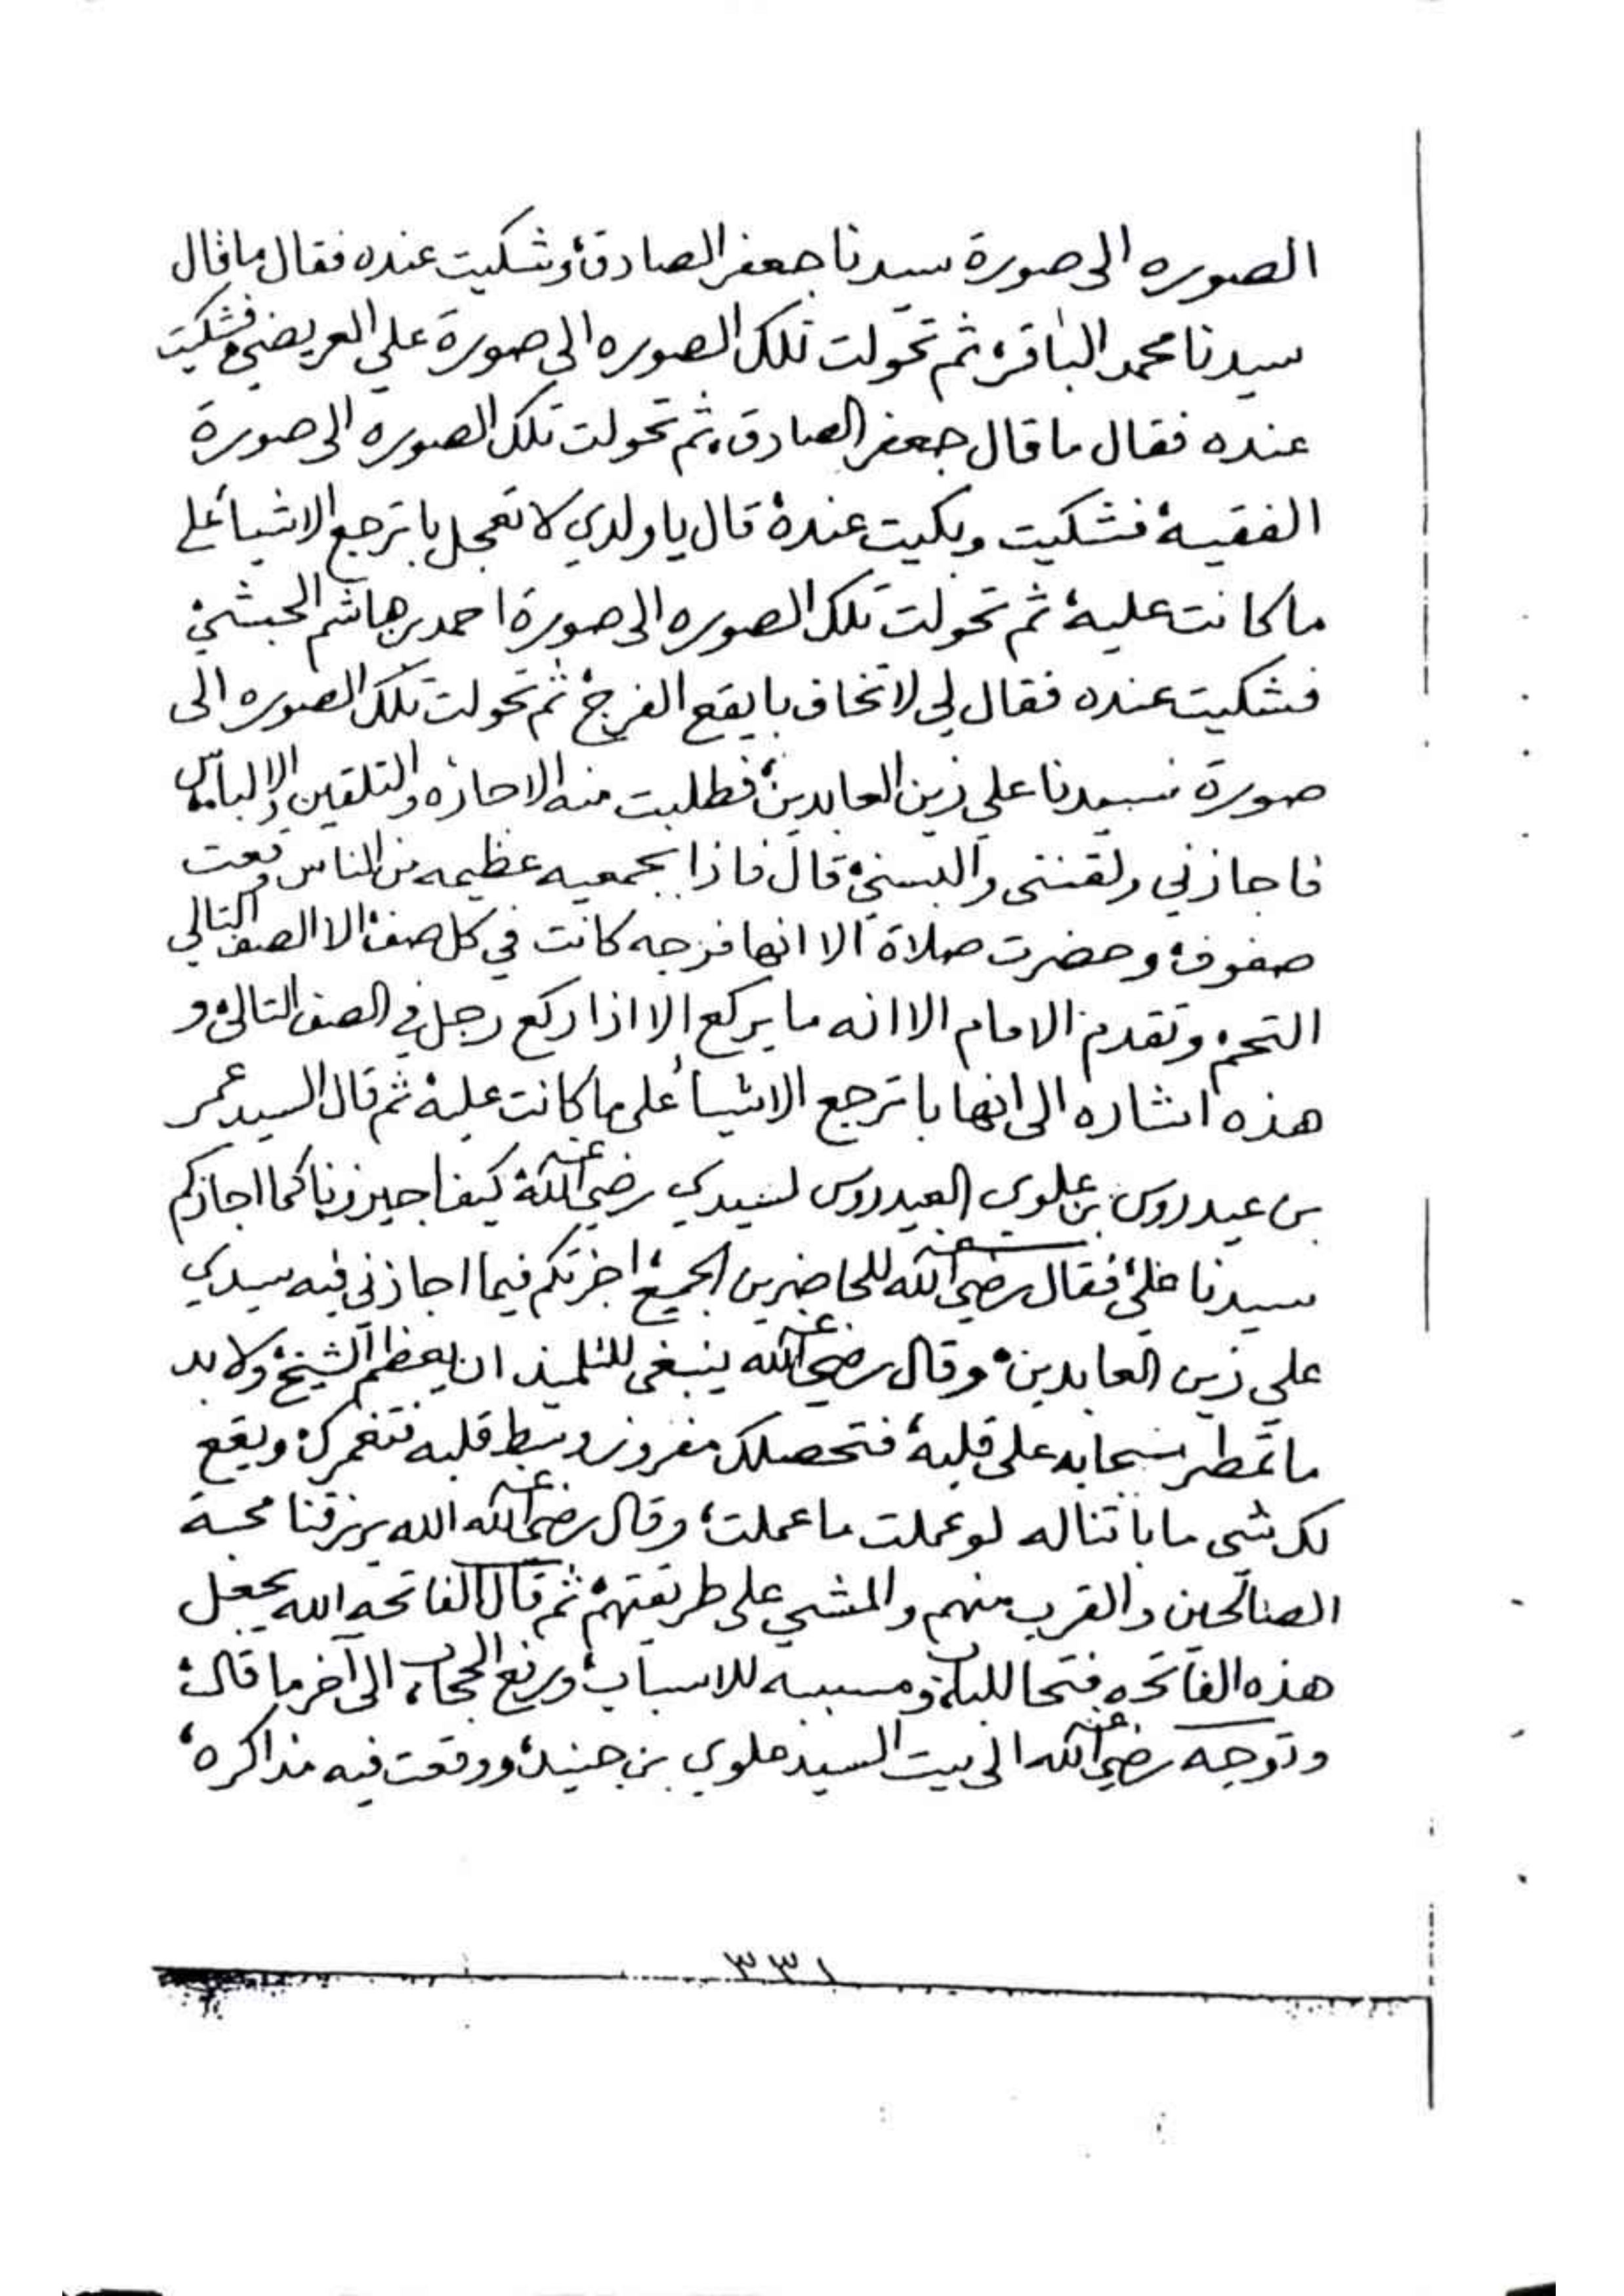 الصوره الى صورة سيدنا جعفر الصادق، وشكيت عنده فقال ما قال
سيدنا محمد الباقر، ثم تحولت تلك الصوره الى صورة علي العريضي، فشكيت
عنده فقال ما قال جعفر الصادق، ثم تحولت تلك الصوره الى صورة
الفقيه، فشكيت وبكيت عنده، قال يا ولدي لا تعجل با ترجع الاشيأ على
ما كانت عليه، ثم تحولت تلك الصوره الى صورة احمد بن هاشم الحبشي،
فشكيت عنده فقال لي لا تخاف با يقع الفرج، ثم تحولت تلك الصوره الى
صورة سيدنا علي زين العابدين، فطلبت منه الاجازه والتلقين والالباس
فاجازني ولقنني والبسني، قال فاذا بجمعيه عظيمه من الناس وقعت
صفوف، وحضرت صلاة الا انها فرجه كانت في كل صف، الا الصف التالي
التحم، وتقدم الامام الا انه ما يركع الا اذا ركع رجل في الصف التالي، و
هذه اشاره الى انها با ترجع الاشيأ على ما كانت عليه، ثم قال السيد عمر
بن عيدروس بن علوي العيدروس لسيدي رضي الله عنه، كيف اجيزونا كما اجازكم
سيدنا علي، فقال رضي الله عنه للحاضرين الجميع، اجزتكم فيما اجازني فيه سيدي
علي زين العابدين، وقال رضي الله عنه ينبغي للتلميذ ان يعظم الشيخ، ولا بد
ما تمطر سحابه على قلبه، فتحصلك مغروز وسط قلبه فتغمرك، ويقع
لك شي ما با تناله لو عملت ما عملت، وقال رضي الله عنه الله يرزقنا محبة
الصالحين والقرب منهم والمشي على طريقتهم، ثم قال الفاتحه الله يجعل
هذه الفاتحه فتحا للباب، ومسببه للاسباب، ورفع الحجاب، الى آخر ما قال،
وتوجه رضي الله عنه الى بيت السيد علوي بن جنيد، ووقعت فيه مذاكره،
٣٣١